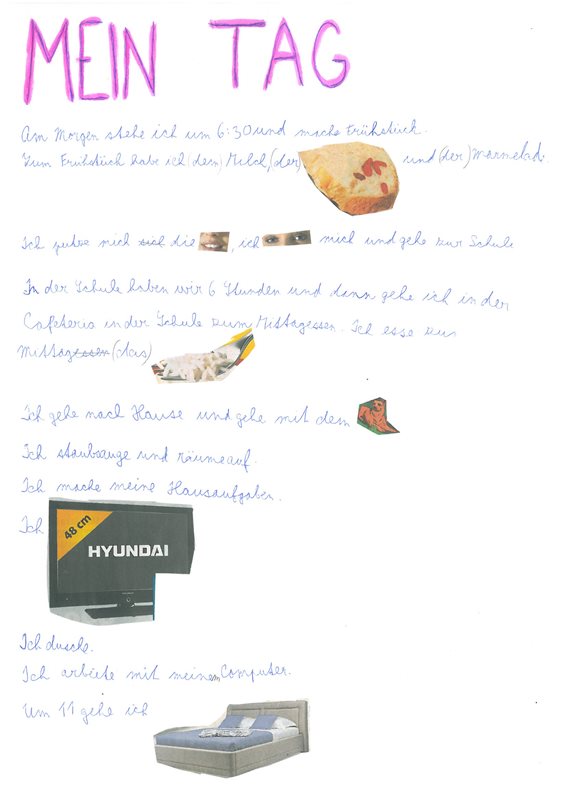 MEIN TAG
Am Morgen stehe ich um 6:30 und mache Frühstück.
Zum Frühstück habe ich (dem) Milch, (der) und (der) Marmelad.
Ich putze mich sich die , ich mich und gehe zur Schule
In der Schule haben wir 6 Stunden und dann gehe ich in der
Cafeteria in der Schule zum Mittagessen. Ich esse zur
Mittagessen (das)
Ich gehe nach Hause und gehe mit dem
Ich staubsauge und räume auf.
Ich mache meine Hausaufgaben.
Ich
48 cm
HYUNDAI
Ich dusche.
Ich arbiete mit meinem Computer.
Um 11 gehe ich